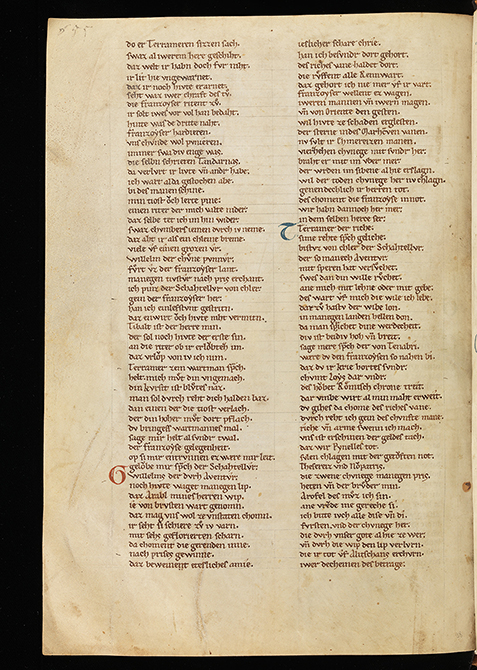 do er Terrameren sitzen sach.
swaz al iweren here geschiht.
daz welt ir haben doch fvr niht.
ir lit hie vngewarnet.
daz ir noch hivte erarnet.
seht waz wer chraft des ty.
die franzoyser ritent zv.
ir sult iwer vor vol han bedaht.
hinte was de dritte naht.
franzoyser hardieren.
vns chvnde wol pvnieren.
immer swa div enge was.
die selbn schrieten Tandarnas.
da verlvr ir livte vn andr habe.
ich wart alda gestochen abe.
bi des manen schine.
min tiost och lerte pine.
einen riter der mich valte nider.
daz selbe tet ich im hin wider.
swaz chvnbers
daz aht ir als ein chleine breme.
vielt vf einen grozen vr.
willelm der chvne pvnnyr.
fvrt vz der franzoyser lant.
manegen tivern nach prise erchant.
ich pinz der Schahtelivr von chler.
gein der franzoyser her.
han ich einlefstvnt gestriten.
daz enwirt och hivte niht vermiten.
Tibalt ist der herre min.
der sol noch hivte der erste sin.
an die riter ob ir erlobteh im.
daz vrlop von iv ich nim.
Terramer zem wartman spch.
helt mich mvt din vngemach.
din kvrsit ist blvtes naz.
man sol dvrch reht dich halden baz.
dan einen der die tiost verlach.
der din hoher mvt dort pflach.
dv bringest wartmannes mal.
sage mir helt al svndr twal.
der franzoyse gelegenheit.
op si mir entrvnnen ez were mir leit.
Gelobe mir spch der Schahtelivr.
Willelme der dvrh Aventvr.
noch hivte waget manegen lip.
daz Arabl mines herren wip.
ie von brvsten wart genomn.
daz mag vns wol ze vnstaten chomn.
ir seht si schiere zv iv varn.
mit sehs geflorierten scharn.
da choment die gerenden inne.
nach prises gewinne.
daz beweinent etesliches amie.
ieslicher schare chrie.
han ich besvndr dort gehort.
des riches vane haldet dort.
die rvffent alle Rennwart.
daz gehort ich nie mer vf ir vart.
franzoyser wellent ez wagen.
iweren mannen vn iwern magen.
vn von oriente den gesten.
wil hivte ze schaden erglesten.
der sterne indes Marhoven vanen.
nv svlt ir
vierzehen chvnege mit svndr her.
braht er mit im vber mer.
der wrden im sibene al hie erslagn.
wil der toden chvnege her nv chlagn.
genendechlich ir herren tot.
des choment die franzoys innot.
wir habn dannoch her mer.
in dem selben herte ser:
Terramer der riche:
sime rehte spch geliche:
bistvz von chler der Schahtelivr.
der so manech Aventvr.
mit speren hat versvchet.
swes dan din wille rvchet.
ane mich mit lehne oder mit gebe.
des wart vf mich die wile ich lebe.
daz zv hastv der wibe lon.
in manegen landen hellen don.
da man spichet dine werdecheit.
div ist beidiv hoh vn breit.
sage mere spch der von Tenabri.
ware dv den franzoysen so nahen bi.
daz dv ir krie hortes svndr.
chvmt Loys dar vndr.
des hobet Romisch chrone treit.
dar vmbe wirt al min maht erweit.
dv gihes da chome des riches vane.
dvrch reht ich gein des chvnfte mane.
riche vn arme swenn ich mach.
vns ist erschinen der geldes tach.
daz wir Pynelles tot.
svlen chlagen mit der getovften not.
Theserez vnd Novpatris.
die zwene chvnege manegen pris.
heten vn der brvder min.
Arofel des mvz ich sin.
ane vrevde mit gereche si.
ich bitte iwch alle dise vn di.
fvrsten vnd der chvnege her.
die dvrh vnser gote al hie ze wer.
vn dvrh die wip den lip verlvrn.
die ir tot vf Alitschanz erchvrn.
iwer decheinen des betrage: